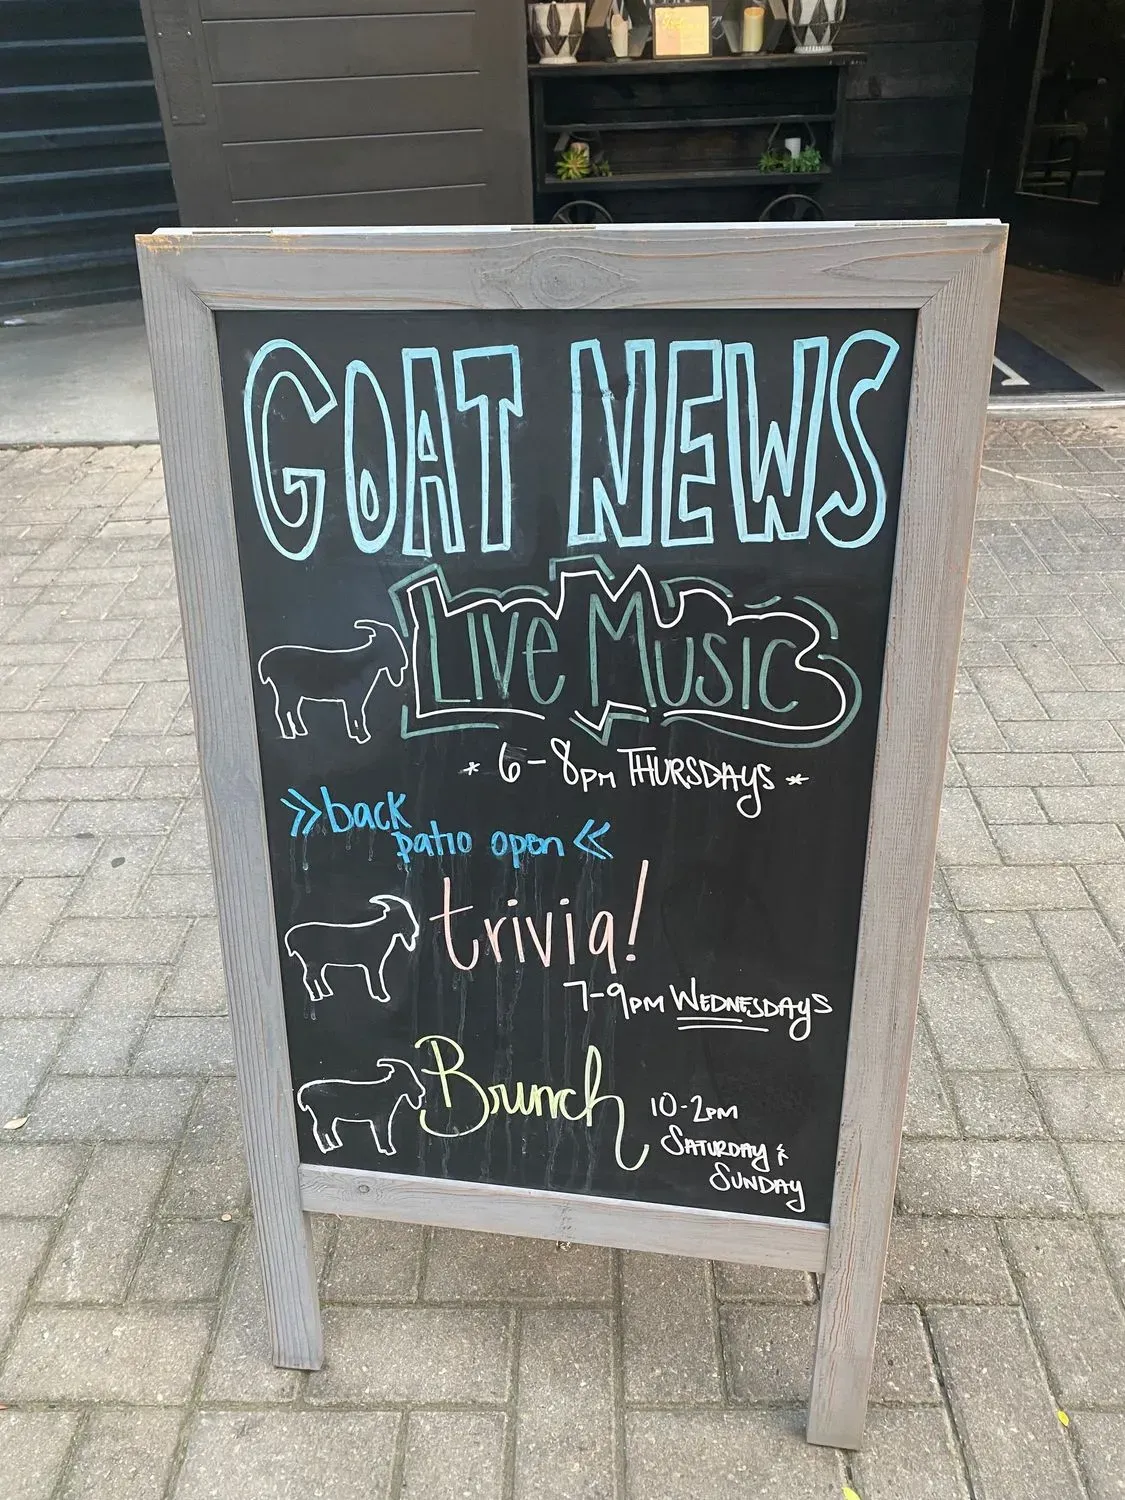 GOAT NEWS
LIVE MUSIC
* 6-8PM THURSDAYS *
>>back
patio open<<
trivia!
7-9PM WEDNESDAYS
Brunch
10-2PM
SATURDAY &
SUNDAY